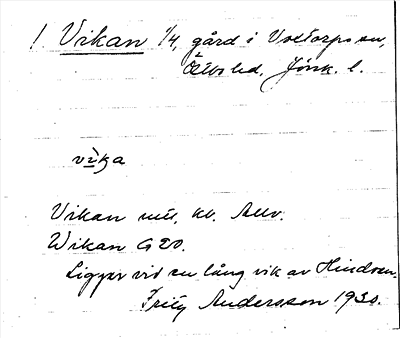 1. Vikan 1/4, gård i Voxtorps sn,
Östbo hd, Jönk. l.
vi̇ka
Vikan
Wikan G 20.
Ligger vid en lång vik av Hindsen.
Fritz Andersson 1930.